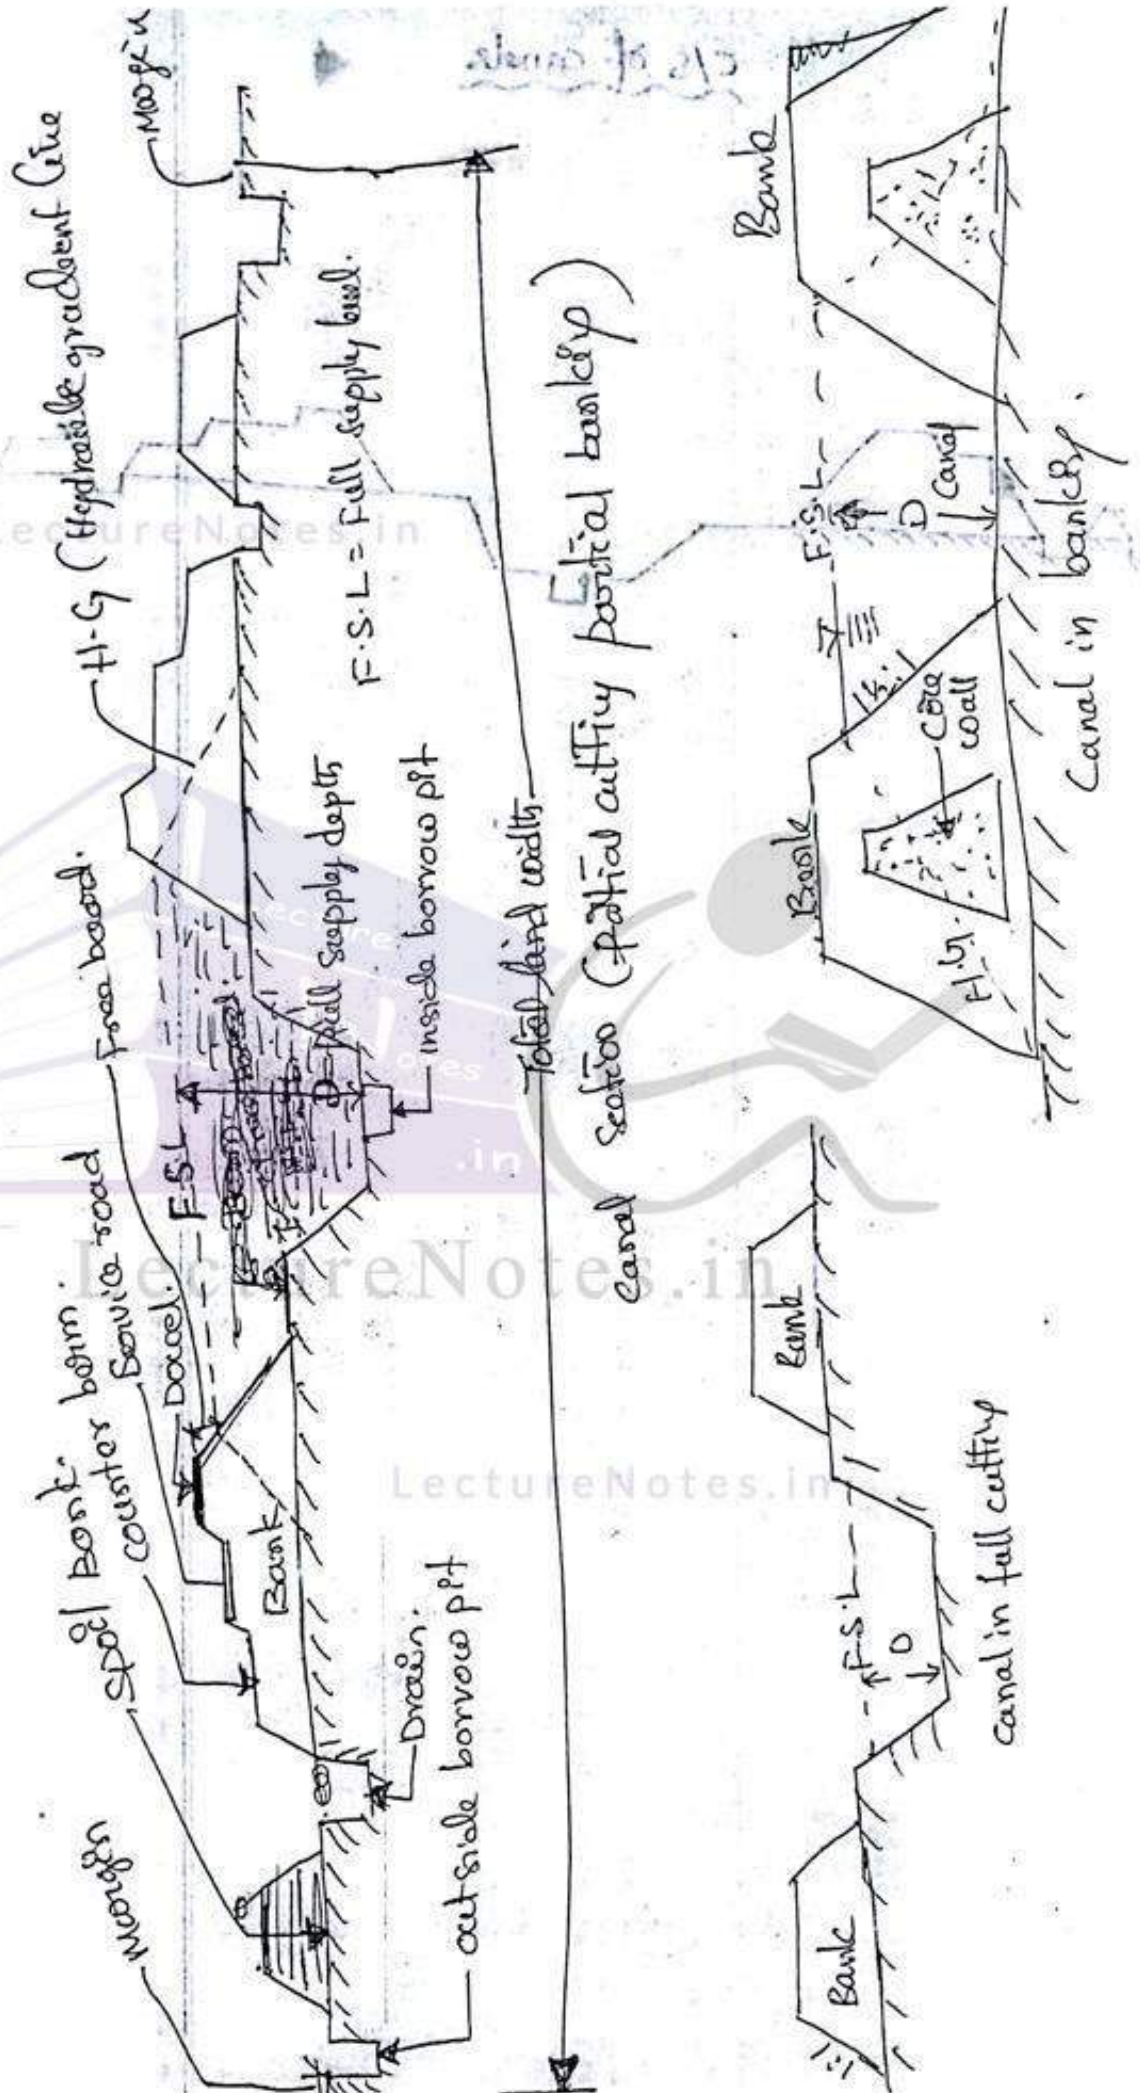 Margin
Spoil Bank.
counter berm.
Service road
Dowel.
Free board.
H.G (Hydraulic gradient line
Margin
F.S.L
Bank
D=full supply depth
F.S.L = Full supply level.
Drain.
outside borrow pit
Inside borrow pit
Total land width
canal section (partial cutting partial banking)
Bank
1:1
F.S.L
D
Bank
canal in full cutting
Bank
H.G.
core
wall
1½:1
F.S.L
D
Canal
Bank
Canal in banking.
LectureNotes.in
LectureNotes.in
LectureNotes.in